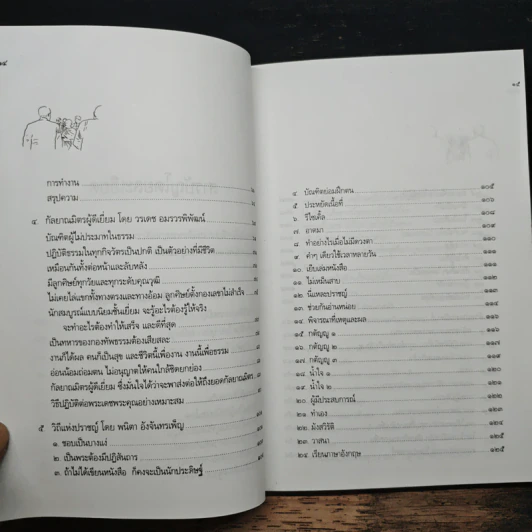 ๑๔
การทำงาน
สรุปความ
๔. กัลยาณมิตรผู้ดีเยี่ยม โดย วรเดช อมรวรพิพัฒน์
บัณฑิตผู้ไม่ประมาทในธรรม
ปฏิบัติธรรมในทุกกิจวัตรเป็นปกติ เป็นตัวอย่างที่มีชีวิต
เหมือนกันทั้งต่อหน้าและลับหลัง
มีลูกศิษย์ทุกวัยและทุกระดับคุณวุฒิ
ไม่เคยไล่แขกทั้งทางตรงและทางอ้อม ลูกศิษย์ตั้งกองเลขาไม่สำเร็จ
นักสมบูรณ์แบบนิยมชั้นเยี่ยม จะรู้อะไรต้องรู้ให้จริง
จะทำอะไรต้องทำให้เสร็จ และดีที่สุด
เป็นทหารของกองทัพธรรมต้องเสียสละ
งานก็ได้ผล คนก็เป็นสุข และชีวิตนี้เพื่องาน งานนี้เพื่อธรรม
อ่อนน้อมถ่อมตน ไม่อนุญาตให้คนใกล้ชิดยกย่อง
กัลยาณมิตรผู้ดีเยี่ยม ซึ่งมั่นใจได้ว่าจะพาส่งต่อให้ถึงยอดกัลยาณมิตร
วิธีปฏิบัติต่อพระเดชพระคุณอย่างเหมาะสม
๕ วิถีแห่งปราชญ์ โดย พนิตา อังจันทรเพ็ญ
๑. ชอบเป็นบางแง่
๒. เป็นพระต้องมีปฏิสันถาร
๓. ถ้าไม่ได้เขียนหนังสือ ก็คงจะเป็นนักประดิษฐ์
๑๕
๔. บัณฑิตย่อมฝึกตน ๑๐๕
๕. ประหยัดเนื้อที่ ๑๐๖
๖. รีไซเคิ้ล ๑๐๘
๗. อาตมา ๑๐๙
๘. ทำอย่างไรเมื่อไม่มีดวงตา ๑๑๐
๙. คำๆ เดียวใช้เวลาหลายวัน ๑๑๑
๑๐. เยี่ยมเล่มหนังสือ ๑๑๑
๑๑. ไม่เหมือนสาย ๑๑๒
๑๒. นี่แหละปราชญ์ ๑๑๓
๑๓. ช่วยกันอ่านหน่อย ๑๑๔
๑๔. พิจารณาที่เหตุและผล ๑๑๕
๑๕. กตัญญู ๑ ๑๑๖
๑๖. กตัญญู ๒ ๑๑๖
๑๗. กตัญญู ๓ ๑๑๗
๑๘. น้ำใจ ๑
๑๙. น้ำใจ ๒
๒๐. ผู้มีประสบการณ์ ๑๒๒
๒๑. ทำเอง
๒๒. มังสวิรัติ
๒๓. วาสนา
๒๔. เรียนภาษาอังกฤษ ๑๒๕